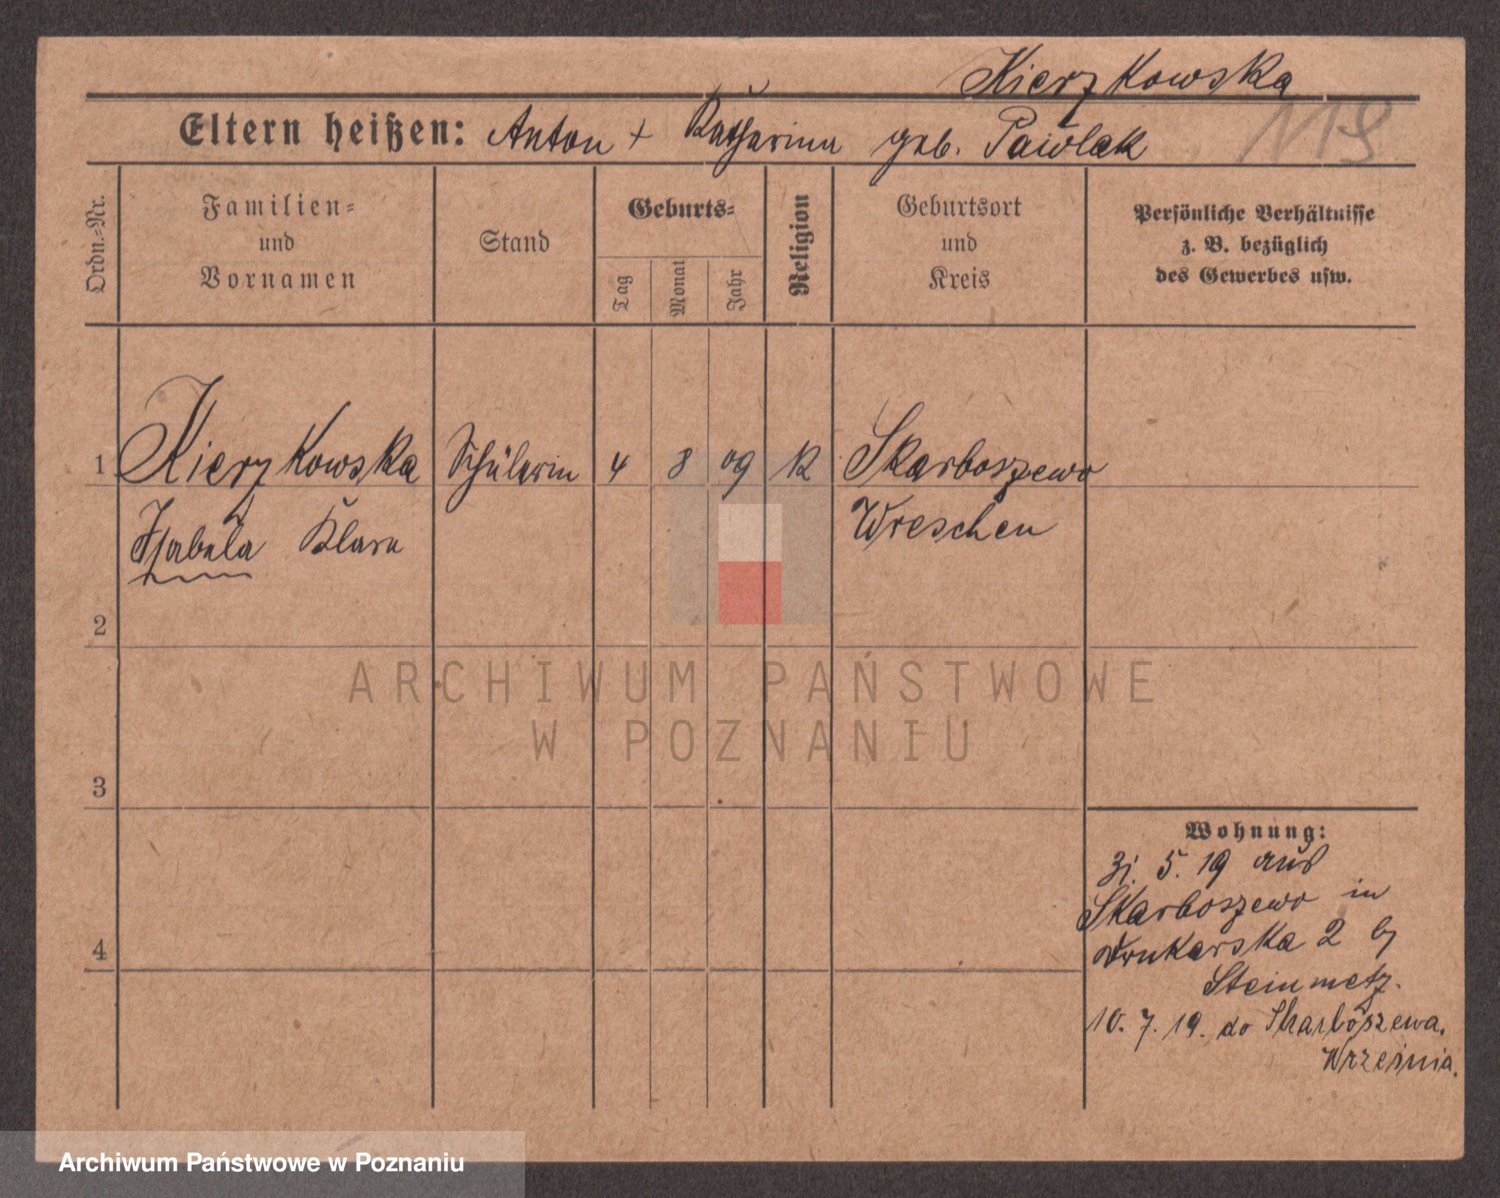 Kierzkowska
Eltern heißen: Anton + Katharina geb. Pawlak
119
Ordn.=Nr.
Familien=
und
Vornamen
Stand
Geburts=
Tag
Monat
Jahr
Religion
Geburtsort
und
Kreis
Persönliche Verhältnisse
z. B. bezüglich
des Gewerbes usw.
1 Kierzkowska Schülerin 4 8 09 K Skarboszewo
Isabela Klara Wreschen
2
ARCHIWUM PAŃSTWOWE
W POZNANIU
3
Wohnung:
5. 19 aus
Skarboszewo in
Drukarska 2 b/
Steinmetz.
4
10. 7. 19. do Skarboszewa.
Września.
Archiwum Państwowe w Poznaniu